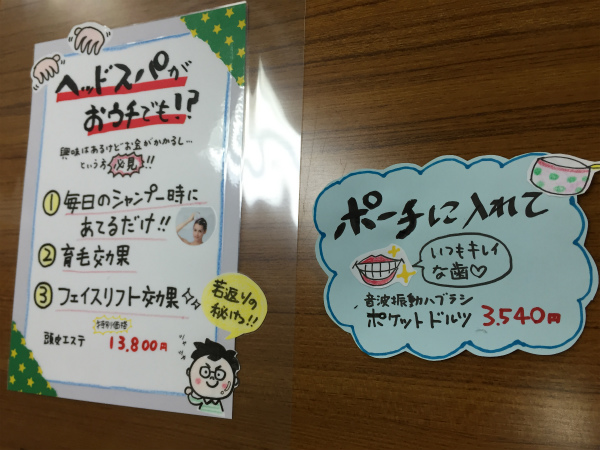 ヘッドスパが
おウチでも!?
興味はあるけどお金がかかるし…
という方必見!!
① 毎日のシャンプー時に
あてるだけ!!
② 育毛効果
③ フェイスリフト効果
若返りの
秘けつ!!
特別価格
頭皮エステ 13,800円
ポーチに入れて
いつもキレイ
な歯♡
音波振動ハブラシ
ポケットドルツ 3,540円